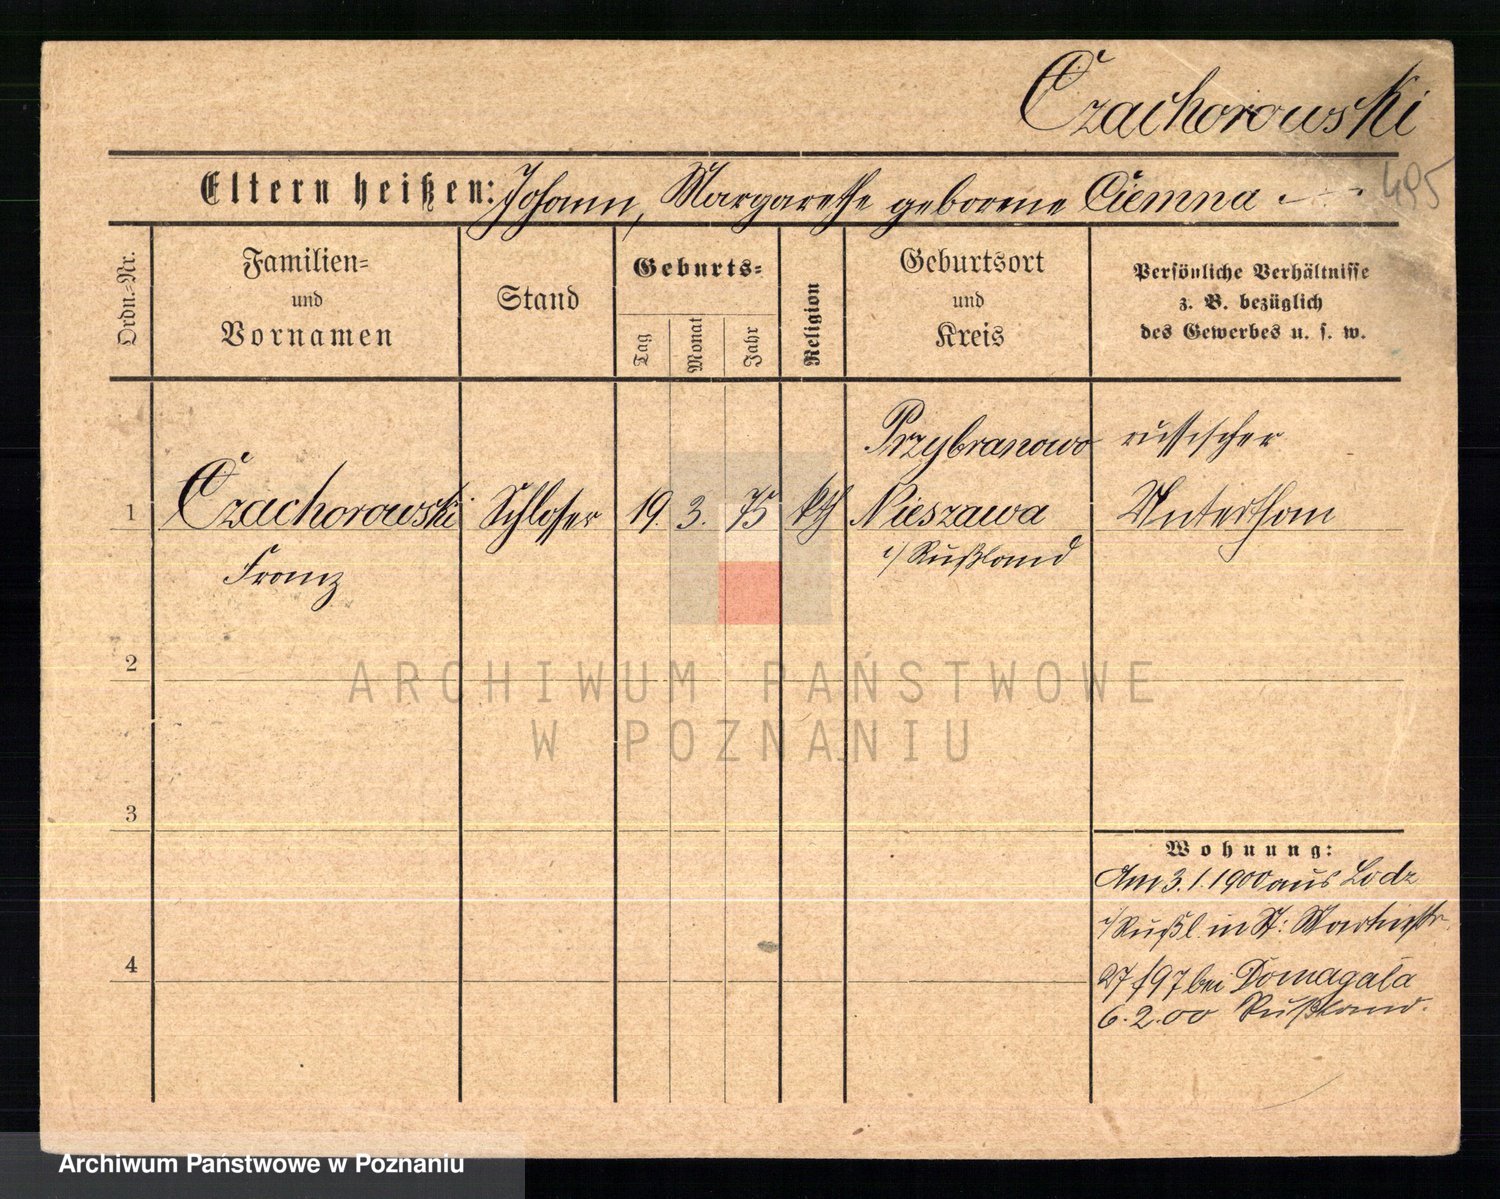 Czachorowski
495
Eltern heißen: Johann, Margarethe geborene Ciemna
Ordn.-Nr.
Familien-
und
Vornamen
Stand
Geburts-
Tag
Monat
Jahr
Religion
Geburtsort
und
Kreis
Persönliche Verhältnisse
z. B. bezüglich
des Gewerbes u. s. w.
Przybranowo russischer
1 Czachorowski Schlosser 19. 3. 75 kth Nieszawa Unterthan
Franz i/ Rußland
2
ARCHIWUM PAŃSTWOWE
W POZNANIU
3
Wohnung:
Am 3.1.1900 aus Lodz
i/Rußl. in St: Martinstr.
27 bei Domagala
4
6.2.00 Rußland.
Archiwum Państwowe w Poznaniu